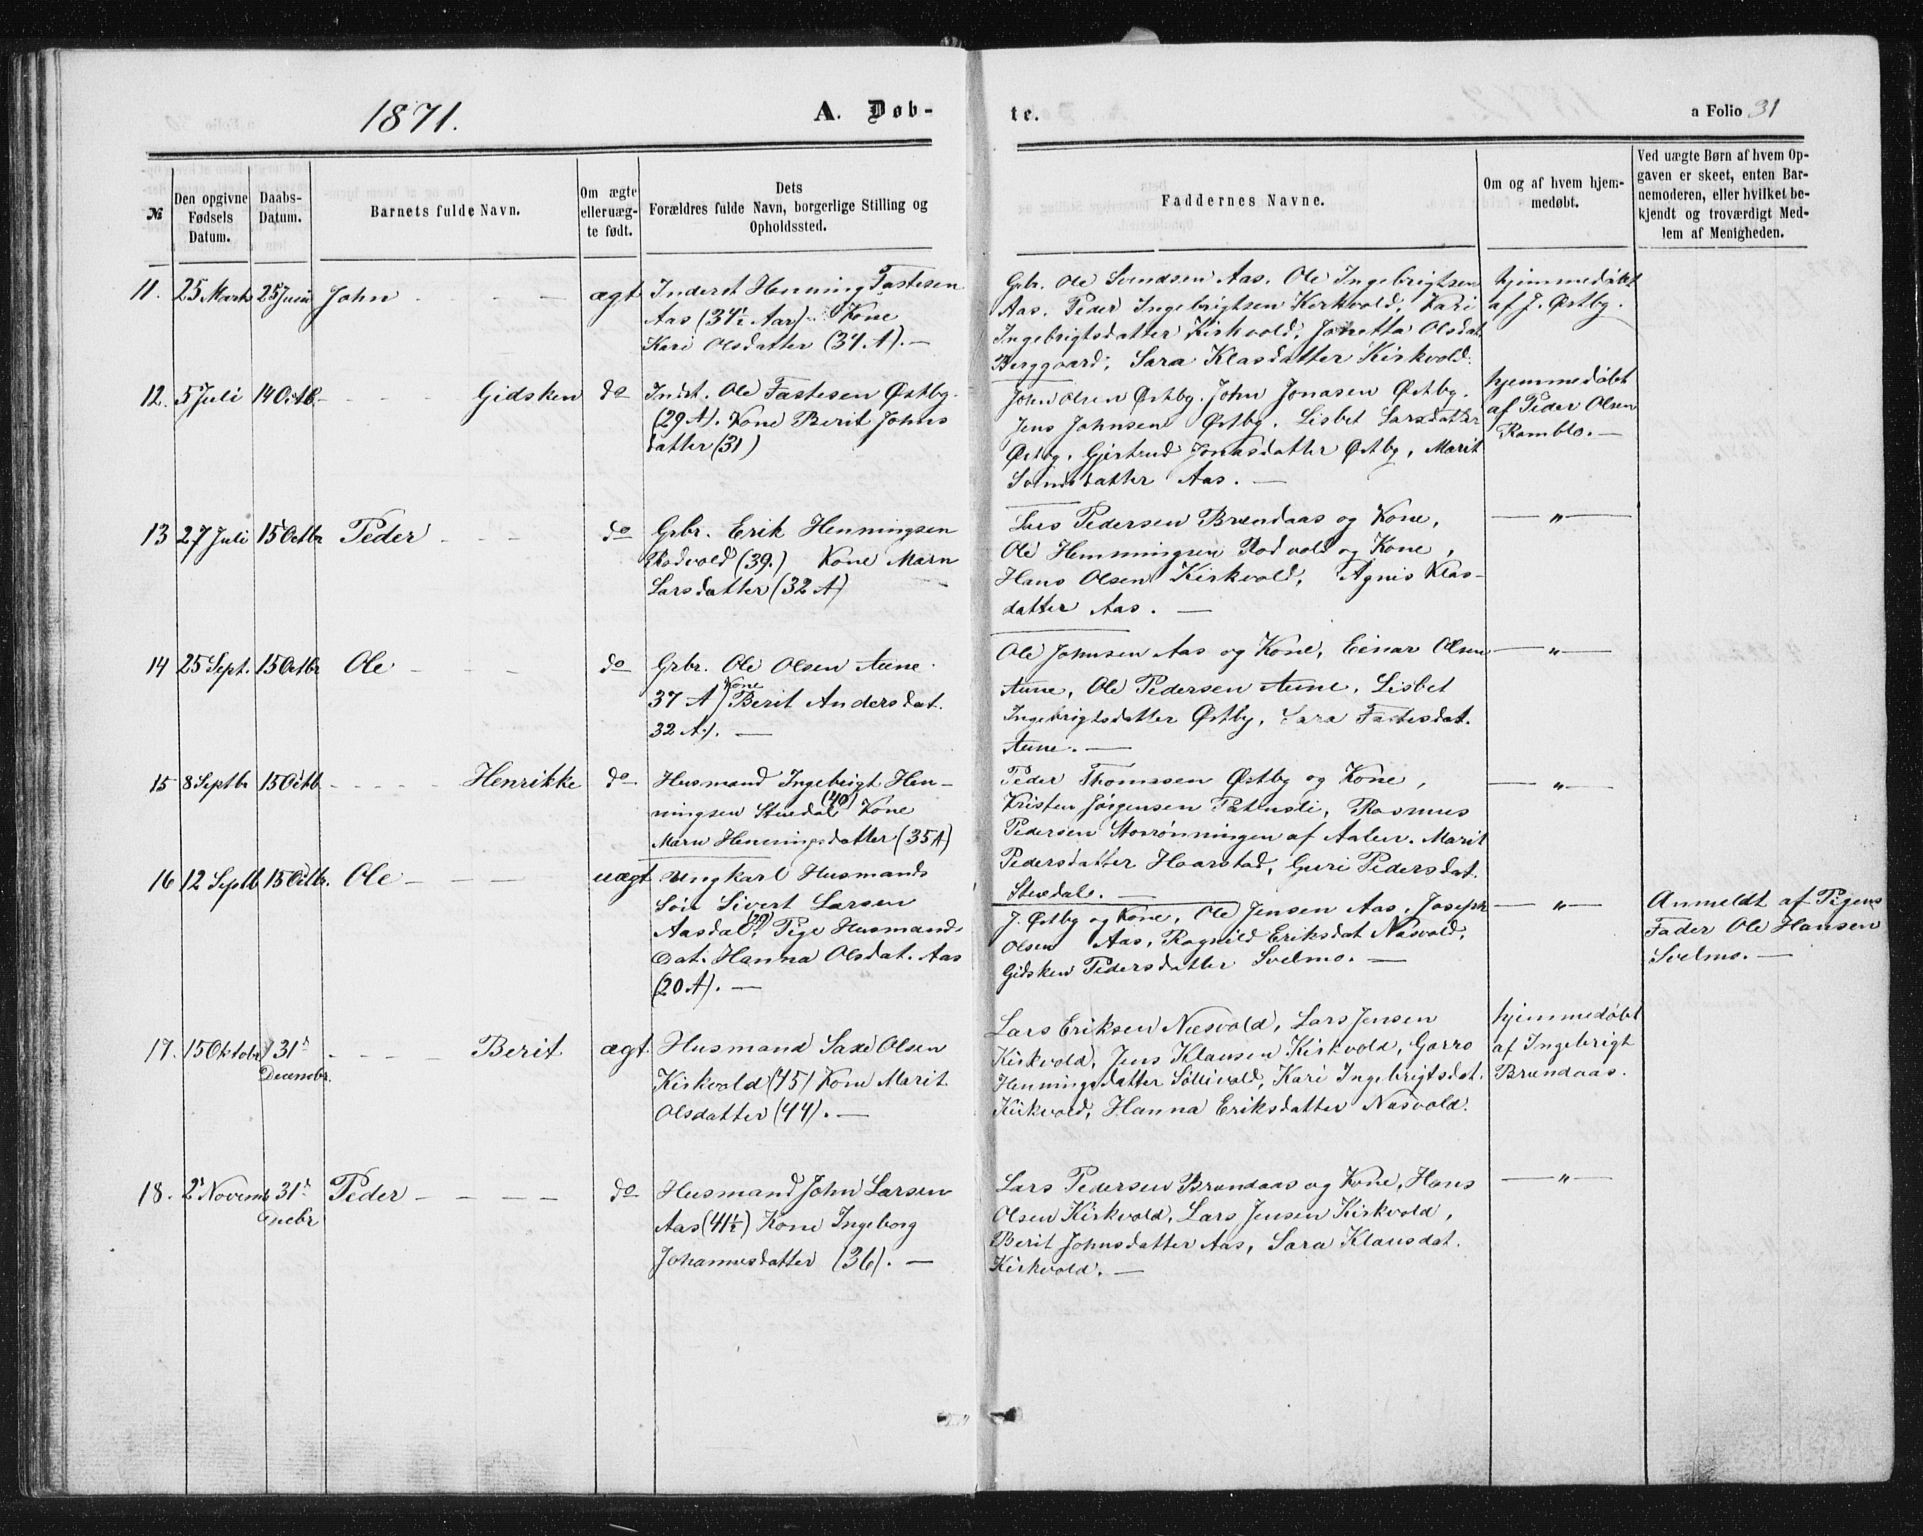 1871.
A. Døb-
te.
a Folio 31
№
Den opgivne Fødsels Datum.
Daabs-Datum.
Barnets fulde Navn.
Om ægte elleruæg-te født.
Dets
Forældres fulde Navn, borgerlige Stilling og
Opholdssted.
Faddernes Navne.
Om og af hvem hjem-
medøbt.
Ved uægte Børn af hvem Op-
gaven er skeet, enten Bar-
nemoderen, eller hvilket be-
kjendt og troværdigt Med-
lem af Menigheden.
11. 25 Marts 25 Juni John - - - ægt Inderst Henning Fastesen
Aas (34½ Aar) Kone
Kari Olsdatter (34 A). —
Grbr. Ole Svendsen Aas. Ole Ingebrigtsen
Aas. Peder Ingebrigtsen Kirkvold, Kari
Ingebrigtsdatter Kirkvold, Jonetta Olsdat.
Berggaard, Sara Klasdatter Kirkvold.
hjemmedøbt
af J. Østby.
12. 5 Juli 14 Octb. - - - - Gidsken do Indst. Ole Fastesen Østby.
(29 A). Kone Berit Johns
datter (31)
John Olsen Østby. John Jonasen Østby.
Jens Johnsen Østby. Lisbet Larsdatter
Østby. Gjertrud Jonasdatter Østby, Marit
Svendsdatter Aas. —
hjemmedøbt
af Peder Olsen
Ramblo. —
13 27 Juli 15 Octbr Peder - - - do Grbr. Erik Henningsen
Rodvold (39.) Kone Marn
Larsdatter (32 A)
Lars Pedersen Brændaas og Kone,
Ole Hemmingsen Rodvold og Kone,
Hans Olsen Kirkvold, Agnis Klas-
datter Aas. —
— " —
14 25 Sept. 15 Octbr Ole - - - do Grbr. Ole Olsen Aune.
37 A) Kone Berit Andersdat.
32 A). —
Ole Johnsen Aas og Kone, Einar Olsen
Aune, Ole Pedersen Aune. Lisbet
Ingebrigtsdatter Østby, Sara Fastesdat.
Aune. —
— " —
15 8 Septbr 15 Octb. - - - - Henrikke do Husmand Ingebrigt Hen-
ningsen Stuedal (40) Kone
Marn Henningsdatter (35 A)
Peder Thomssen Østby og Kone,
Kristen Jørgensen Patrusli, Rasmus
Pedersen Storrønningen af Aalen. Marit
Pedersdatter Haarstad, Guri Pedersdat.
Stuedal. —
— " —
16 12 Septb 15 Octbr. Ole - - - uægt Ungkarl Husmands
Søn Sivert Larsen
Aasdal, Pige Husmands
Dat. Hanna Olsdat. Aas
(20 A). —
J. Østby og Kone, Ole Jensen Aas, Joseph
Olsen Aas, Ragnild Eriksdat Næsvold,
Gidsken Pedersdatter Svelmo. —
— " —
Anmeldt af Pigens
Fader Ole Hansen
Svelmo. —
17. 15 Oktobr 31te Decembr. - - - - Berit ægt. Husmand Saxe Olsen
Kirkvold (45) Kone Marit
Olsdatter (44). —
Lars Eriksen Næsvold, Lars Jensen
Kirkvold, Jens Klausen Kirkvold, Gorro
Henningsdatter Søllivold, Kari Ingebrigtsdat.
Kirkvold, Hanna Eriksdatter Næsvold.
hjemmedøbt
af Ingebrigt
Brændaas.
18. 2 Novemb 31te Decbr Peder - - - - do Husmand John Larsen
Aas (41½) Kone Ingeborg
Johannesdatter (36). —
Lars Pedersen Brændaas og Kone, Hans
Olsen Kirkvold, Lars Jensen Kirkvold,
Berit Johnsdatter Aas, Sara Klausdat.
Kirkvold. —
— " —